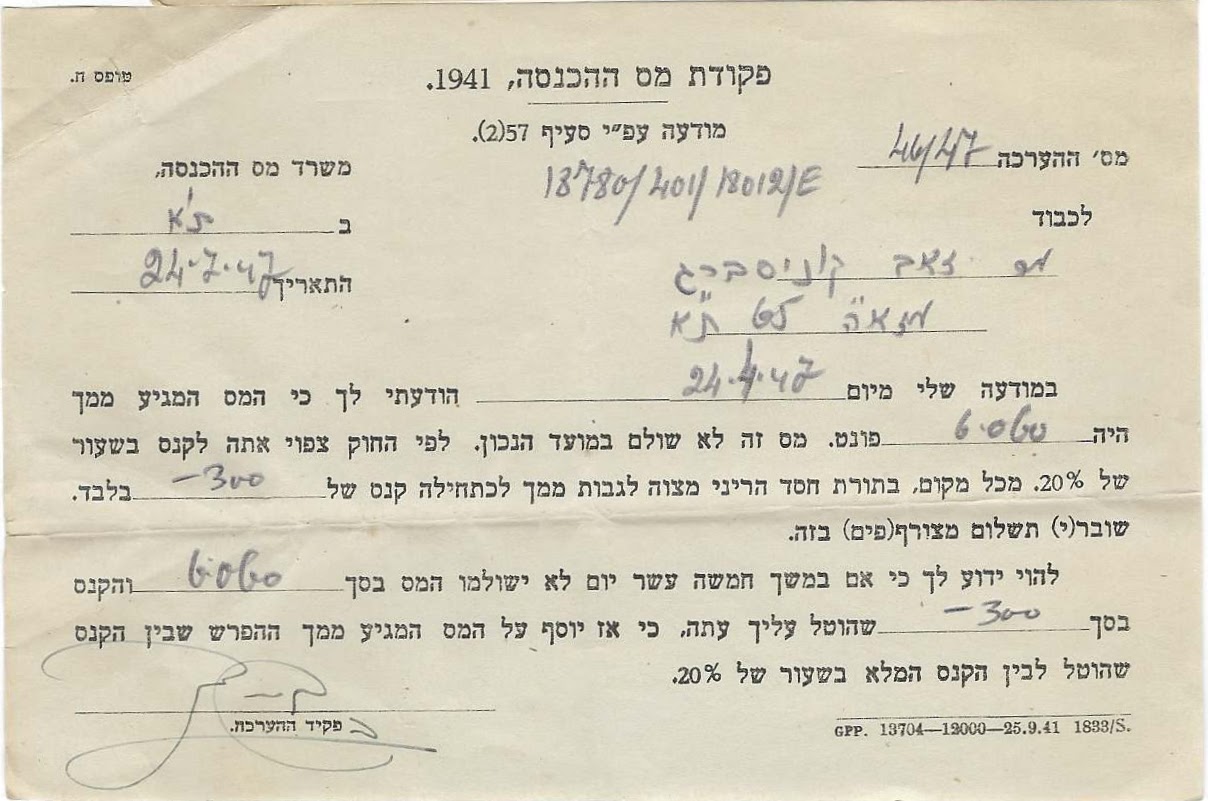 טופס ח.
פקודת מס ההכנסה, 1941.
מודעה עפ״י סעיף 57(2).
מס׳ ההערכה 46/47
18780/401/18012/E
משרד מס ההכנסה,
ב ת״א
התאריך 24.7.47
לכבוד
מר זאב קניסברג
מזא״ה לט ת״א
במודעה שלי מיום 24.4.47 הודעתי לך כי המס המגיע ממך
היה פונט. מס זה לא שולם במועד הנכון. לפי החוק צפוי אתה לקנס בשעור
של 20%. מכל מקום, בתורת חסד הריני מצוה לגבות ממך לכתחילה קנס של 300- בלבד.
שובר(י) תשלום מצורף(פים) בזה.
להוי ידוע לך כי אם במשך חמשה עשר יום לא ישולמו המס בסך והקנס
בסך 300- שהוטל עליך עתה, כי אז יוסף על המס המגיע ממך ההפרש שבין הקנס
שהוטל לבין הקנס המלא בשעור של 20%.
פקיד ההערכה.
GPP. 13704—12000—25.9.41 1833/S.